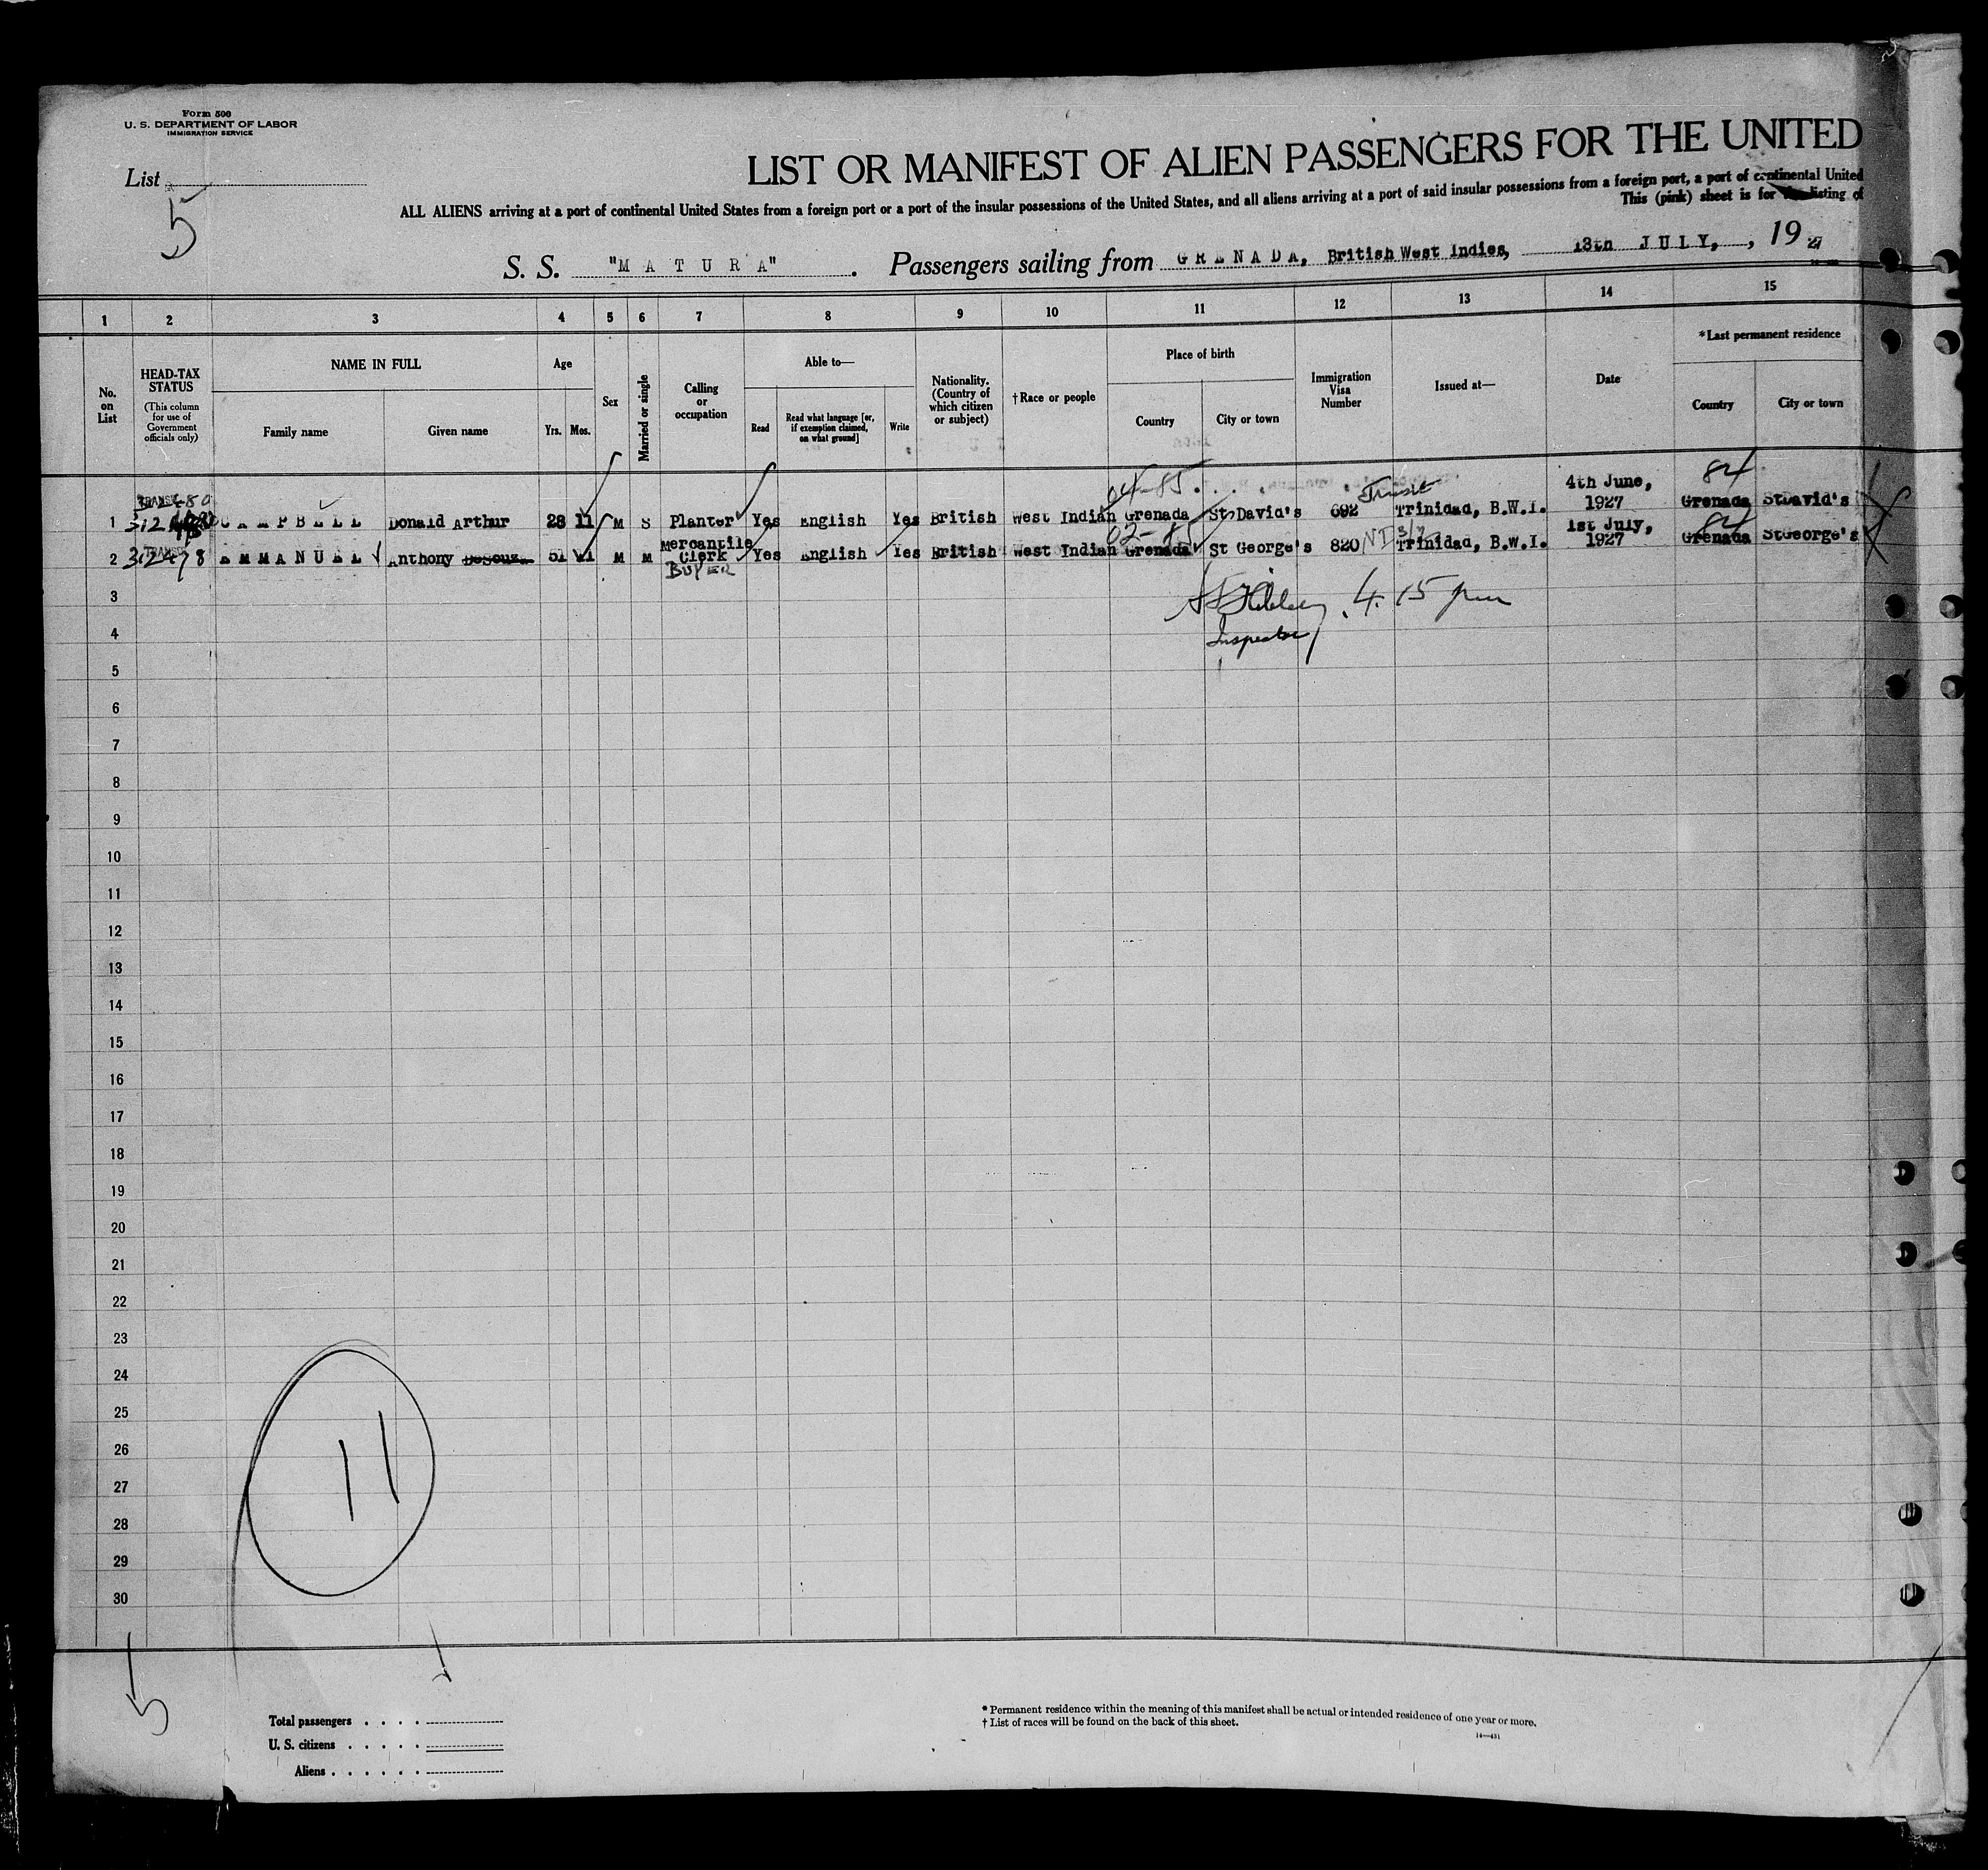 Form 500
U. S. DEPARTMENT OF LABOR
IMMIGRATION SERVICE
List
5
LIST OR MANIFEST OF ALIEN PASSENGERS FOR THE UNITED
ALL ALIENS arriving at a port of continental United States from a foreign port or a port of the insular possessions of the United States, and all aliens arriving at a port of said insular possessions from a foreign port, a port of continental United
This (pink) sheet is for the listing of
S. S. "MATURA". Passengers sailing from GRENADA, British West Indies, 13th JULY, , 1927
1 2 3 4 5 6 7 8 9 10 11 12 13 14 15
No. on List
HEAD-TAX STATUS
(This column for use of Government officials only)
NAME IN FULL
Family name Given name
Age
Yrs. Mos.
Sex
Married or single
Calling or occupation
Able to—
Read
Read what language [or, if exemption claimed, on what ground]
Write
Nationality. (Country of which citizen or subject)
†Race or people
Place of birth
Country City or town
Immigration Visa Number
Issued at—
Date
*Last permanent residence
Country City or town
04-85. Transit 84
1 CAMPBELL Donald Arthur 28 11 M S Planter Yes English Yes British West Indian Grenada St David's 692 Trinidad, B.W.I. 4th June, 1927 Grenada St David's
84
2 312478 EMMANUEL Anthony 51 11 M M Mercantile Clerk Yes English Yes British West Indian Grenada St George's 820 Trinidad, B.W.I. 1st July, 1927 Grenada St George's
BUYER
3
4.15 pm
4
Inspector
5
6
7
8
9
10
11
12
13
14
15
16
17
18
19
20
21
22
23
24
25
26
27
28
29
30
11
5
Total passengers . . . .
U. S. citizens . . . . .
Aliens . . . . . .
* Permanent residence within the meaning of this manifest shall be actual or intended residence of one year or more.
† List of races will be found on the back of this sheet.
14—451